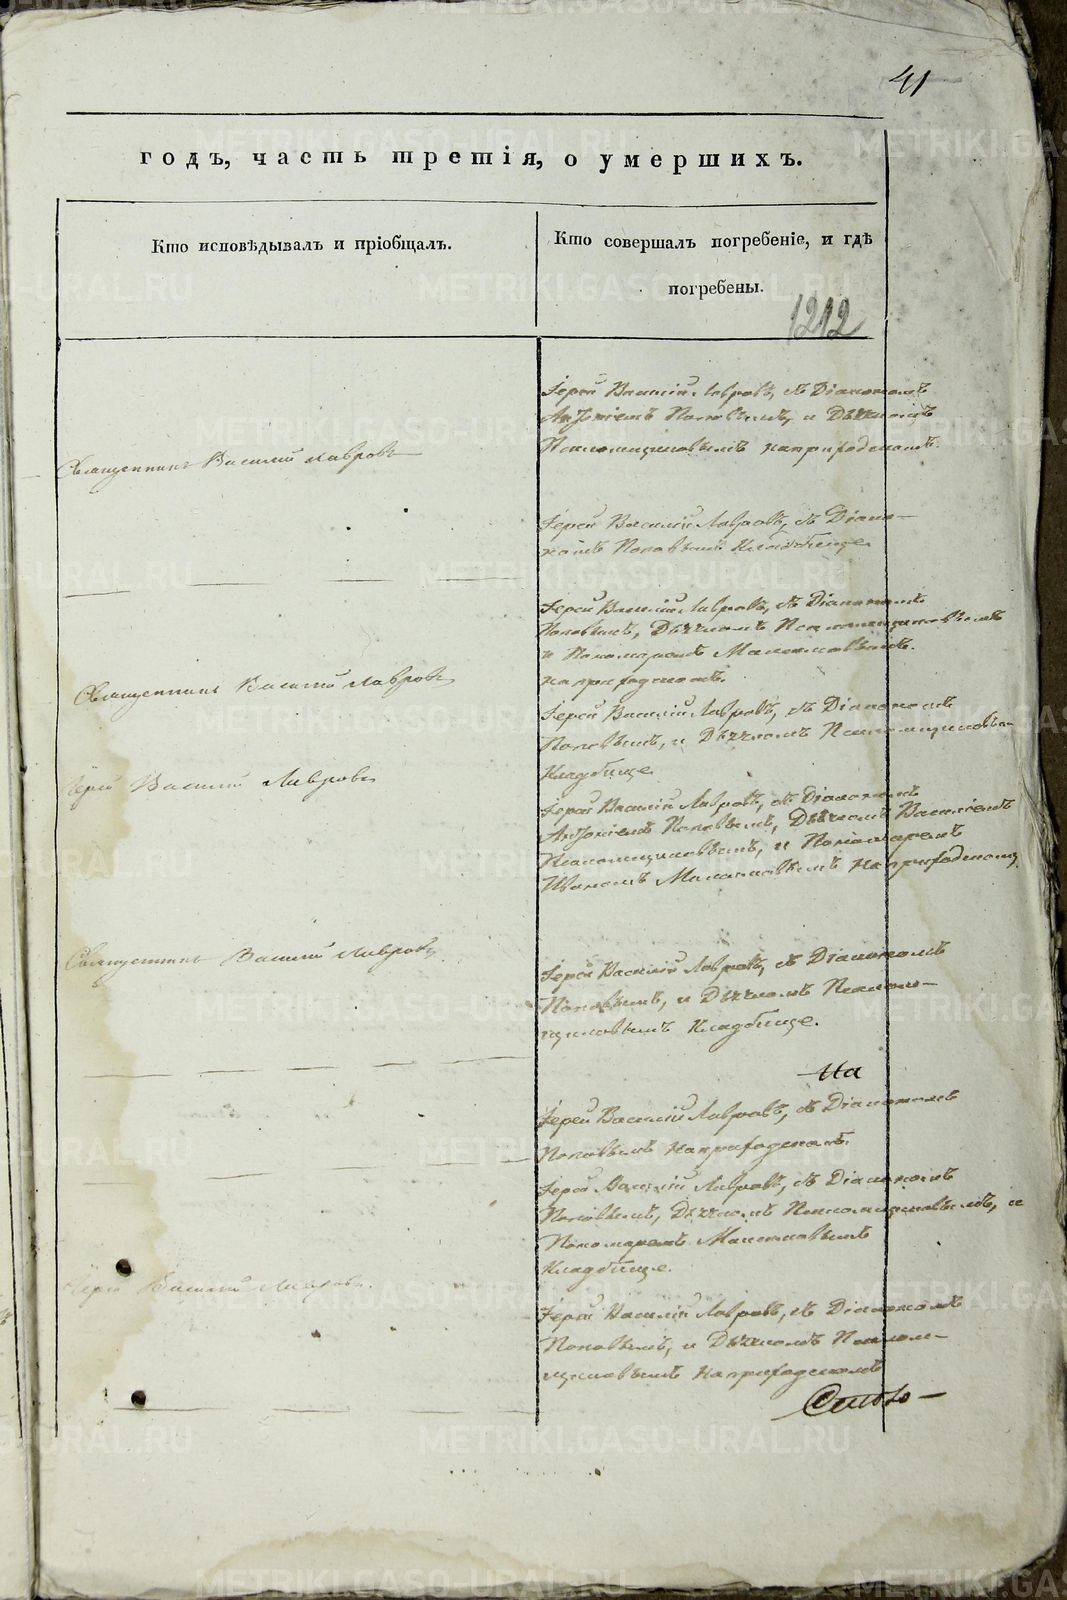 41
годъ, часть третія, о умершихъ.
Кто исповѣдывалъ и пріобщалъ.
Кто совершалъ погребеніе, и гдѣ
погребены.
1212
Іерей Василій Лавровъ, съ Діакономъ
Поповымъ, и Дьячкомъ
Псаломщиковымъ на приходскомъ.
Священникъ Василий Лавровъ
Іерей Василій Лавровъ, съ Діако—
номъ Поповымъ Кладбище
Іерей Василій Лавровъ, съ Діакономъ
Поповымъ, Дьячкомъ Псаломщиковымъ
и Пономаремъ
на приходскомъ.
Священникъ Василий Лавровъ
Іерей Василій Лавровъ, съ Діакономъ
Поповымъ, и Дьячкомъ Псаломщиковым
Кладбище
Іерей Василий Лавровъ
Іерей Василій Лавровъ, съ Діакономъ
Поповымъ, Дьячкомъ Василіемъ
Псаломщиковымъ, и Пономаремъ
Иваномъ на приходскому
Священникъ Василий Лавровъ
Іерей Василій Лавровъ, съ Діакономъ
Поповымъ, и Дьячкомъ Псалом—
щиковымъ Кладбище.
На
Іерей Василій Лавровъ, съ Діакономъ
Поповымъ на приходскомъ.
Іерей Василій Лавровъ, съ Діакономъ
Поповымъ, Дьячкомъ Псаломщиковымъ, и
Пономаремъ
Кладбище.
Іерей Василий Лавровъ.
Іерей Василій Лавровъ, съ Діакономъ
Поповымъ, и Дьячкомъ Псалом—
щиковымъ на приходскомъ
METRIKI.GASO-URAL.RU